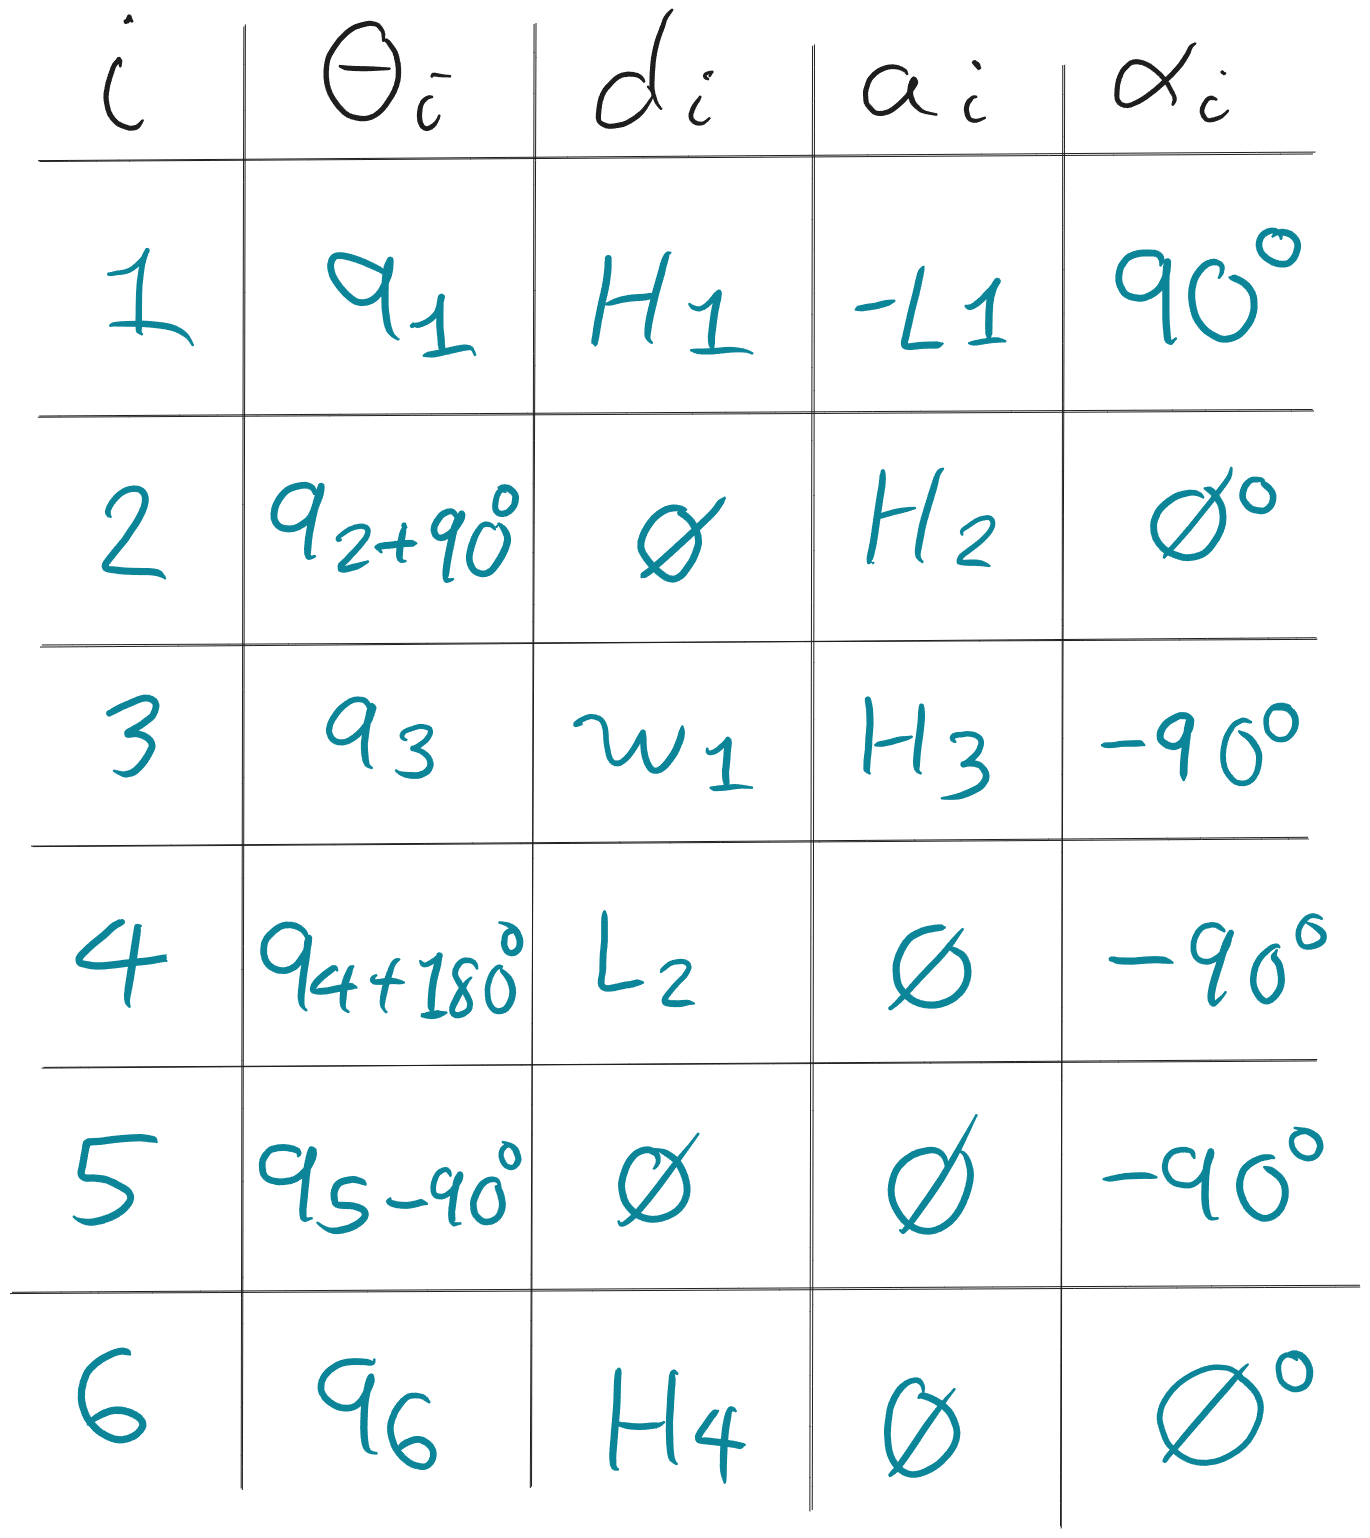 i θi di ai αi
1 q1 H1 -L1 90°
2 q2+90° Ø H2 Ø°
3 q3 w1 H3 -90°
4 q4+180° L2 Ø -90°
5 q5-90° Ø Ø -90°
6 q6 H4 Ø Ø°